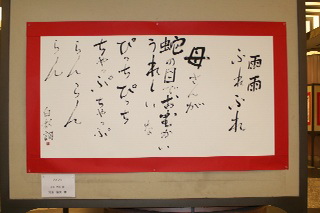 雨雨
ふれふれ
母さんが
蛇の目でお迎かい
うれしいな
ぴっちぴっち
ちゃっぷちゃっぷ
らんらん
らん
白秋詞